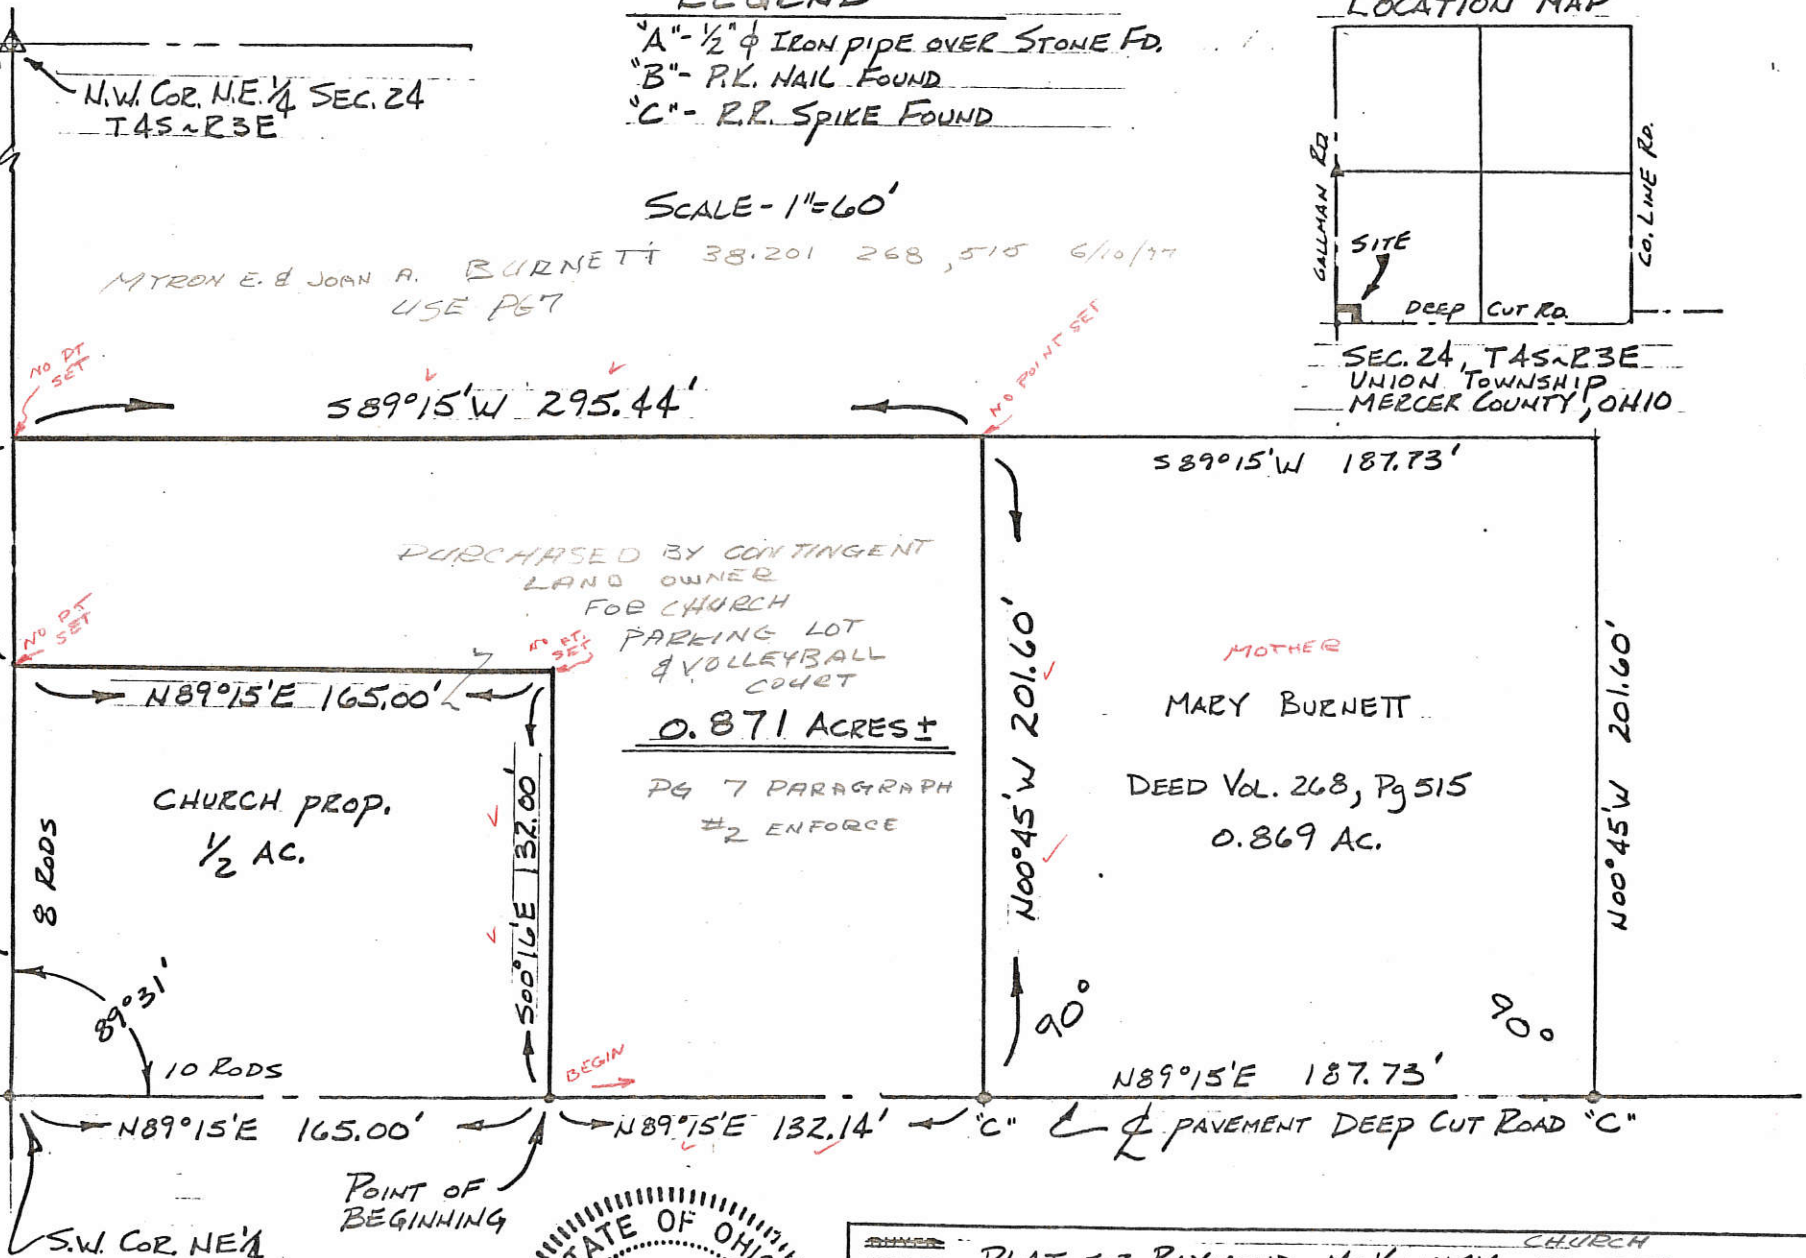 LEGEND
"A"- 1/2" ϕ IRON PIPE OVER STONE FD.
"B"- P.K. NAIL FOUND
"C"- R.R. SPIKE FOUND
LOCATION MAP
N.W. COR. N.E. 1/4 SEC. 24
T4S~R3E
SCALE - 1"=60'
GALLMAN RD
CO. LINE RD.
SITE
DEEP CUT RD.
SEC. 24, T4S~R3E
UNION TOWNSHIP
MERCER COUNTY, OHIO
MYRON E. & JOAN A. BURNETT 38.201 268, 515
USE PG 7
NO PT
SET
NO POINT SET
S89°15'W 295.44'
S89°15'W 187.73'
PURCHASED BY CONTINGENT
LAND OWNER
FOR CHURCH
PARKING LOT
& VOLLEYBALL
COURT
NO PT
SET
NO PT.
SET
N89°15'E 165.00'
0.871 ACRES ±
PG 7 PARAGRAPH
#2 ENFORCE
CHURCH PROP.
1/2 AC.
8 RODS
S00°16'E 132.00'
N00°45'W 201.60'
MOTHER
MARY BURNETT
DEED VOL. 268, Pg 515
0.869 AC.
N00°45'W 201.60'
89°31'
10 RODS
90°
90°
BEGIN
N89°15'E 187.73'
N89°15'E 165.00'
N89°15'E 132.14'
"C"
℄ PAVEMENT DEEP CUT ROAD "C"
POINT OF
BEGINNING
S.W. COR. NE 1/4
STATE OF OHIO
CHURCH